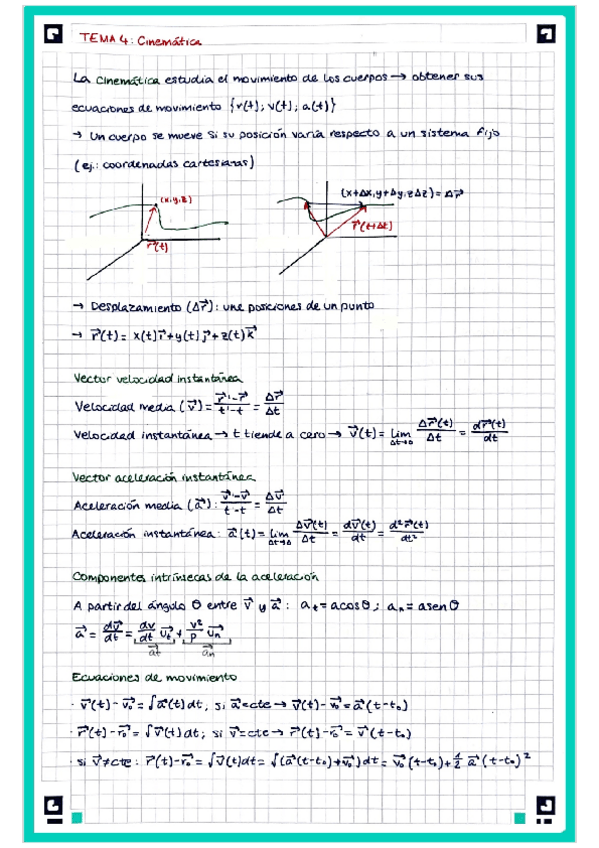 TEMA 4: Cinemática
La cinemática estudia el movimiento de los cuerpos → obtener sus
ecuaciones de movimiento {r(t); v(t); a(t)}
→ Un cuerpo se mueve si su posición varía respecto a un sistema fijo
(ej.: coordenadas cartesianas)
(x,y,z)
r⃗(t)
(x+Δx, y+Δy, zΔz) = Δr⃗
r⃗(t+Δt)
→ Desplazamiento (Δr⃗): une posiciones de un punto
→ r⃗(t) = x(t)i⃗ + y(t)j⃗ + z(t)k⃗
Vector velocidad instantánea
Velocidad media (v⃗) = (r⃗'-r⃗)/(t'-t) = Δr⃗/Δt
Velocidad instantánea → t tiende a cero → v⃗(t) = lim Δt→0 Δr⃗(t)/Δt = dr⃗(t)/dt
Vector aceleración instantánea
Aceleración media (a⃗): (v⃗'-v⃗)/(t'-t) = Δv⃗/Δt
Aceleración instantánea: a⃗(t) = lim Δt→0 Δv⃗(t)/Δt = dv⃗(t)/dt = d²r⃗(t)/dt²
Componentes intrínsecas de la aceleración
A partir del ángulo θ entre v⃗ y a⃗: at = a cos θ; an = a sen θ
a⃗ = dv⃗/dt = dv/dt u⃗t + v²/ρ u⃗n
a⃗t a⃗n
Ecuaciones de movimiento
· v⃗(t) - v⃗₀ = ∫a⃗(t)dt; si a⃗=cte → v⃗(t) - v⃗₀ = a⃗(t-t₀)
· r⃗(t) - r⃗₀ = ∫v⃗(t)dt; si v⃗=cte → r⃗(t) - r⃗₀ = v⃗(t-t₀)
· si v⃗≠cte: r⃗(t) - r⃗₀ = ∫v⃗(t)dt = ∫(a⃗(t-t₀)+v⃗₀)dt = v⃗₀(t-t₀) + 1/2 a⃗(t-t₀)²